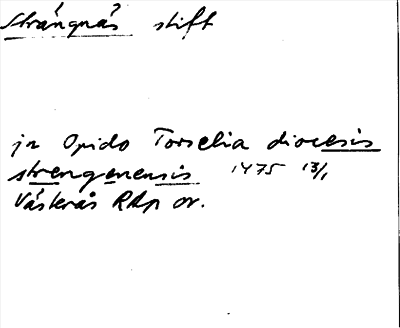 Strängnäs stift
in Opido Torselia diocesis
strengenensis 1475 13/1
Västerås RAp or.